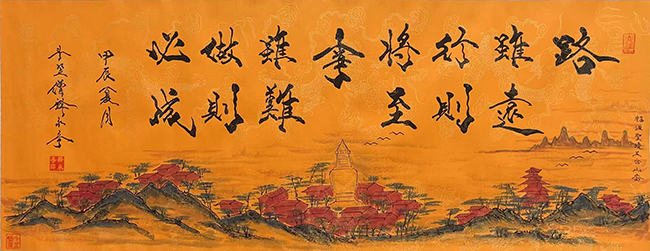 路
雖遠
行則
將至
事
雖難
做則
必成
甲辰夏月